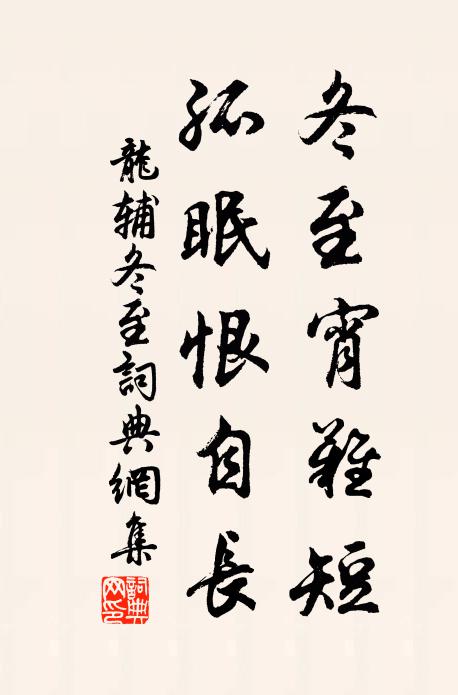 冬至宵難短
孤眠恨自長
龍輔冬至詞典網集
詞典网印